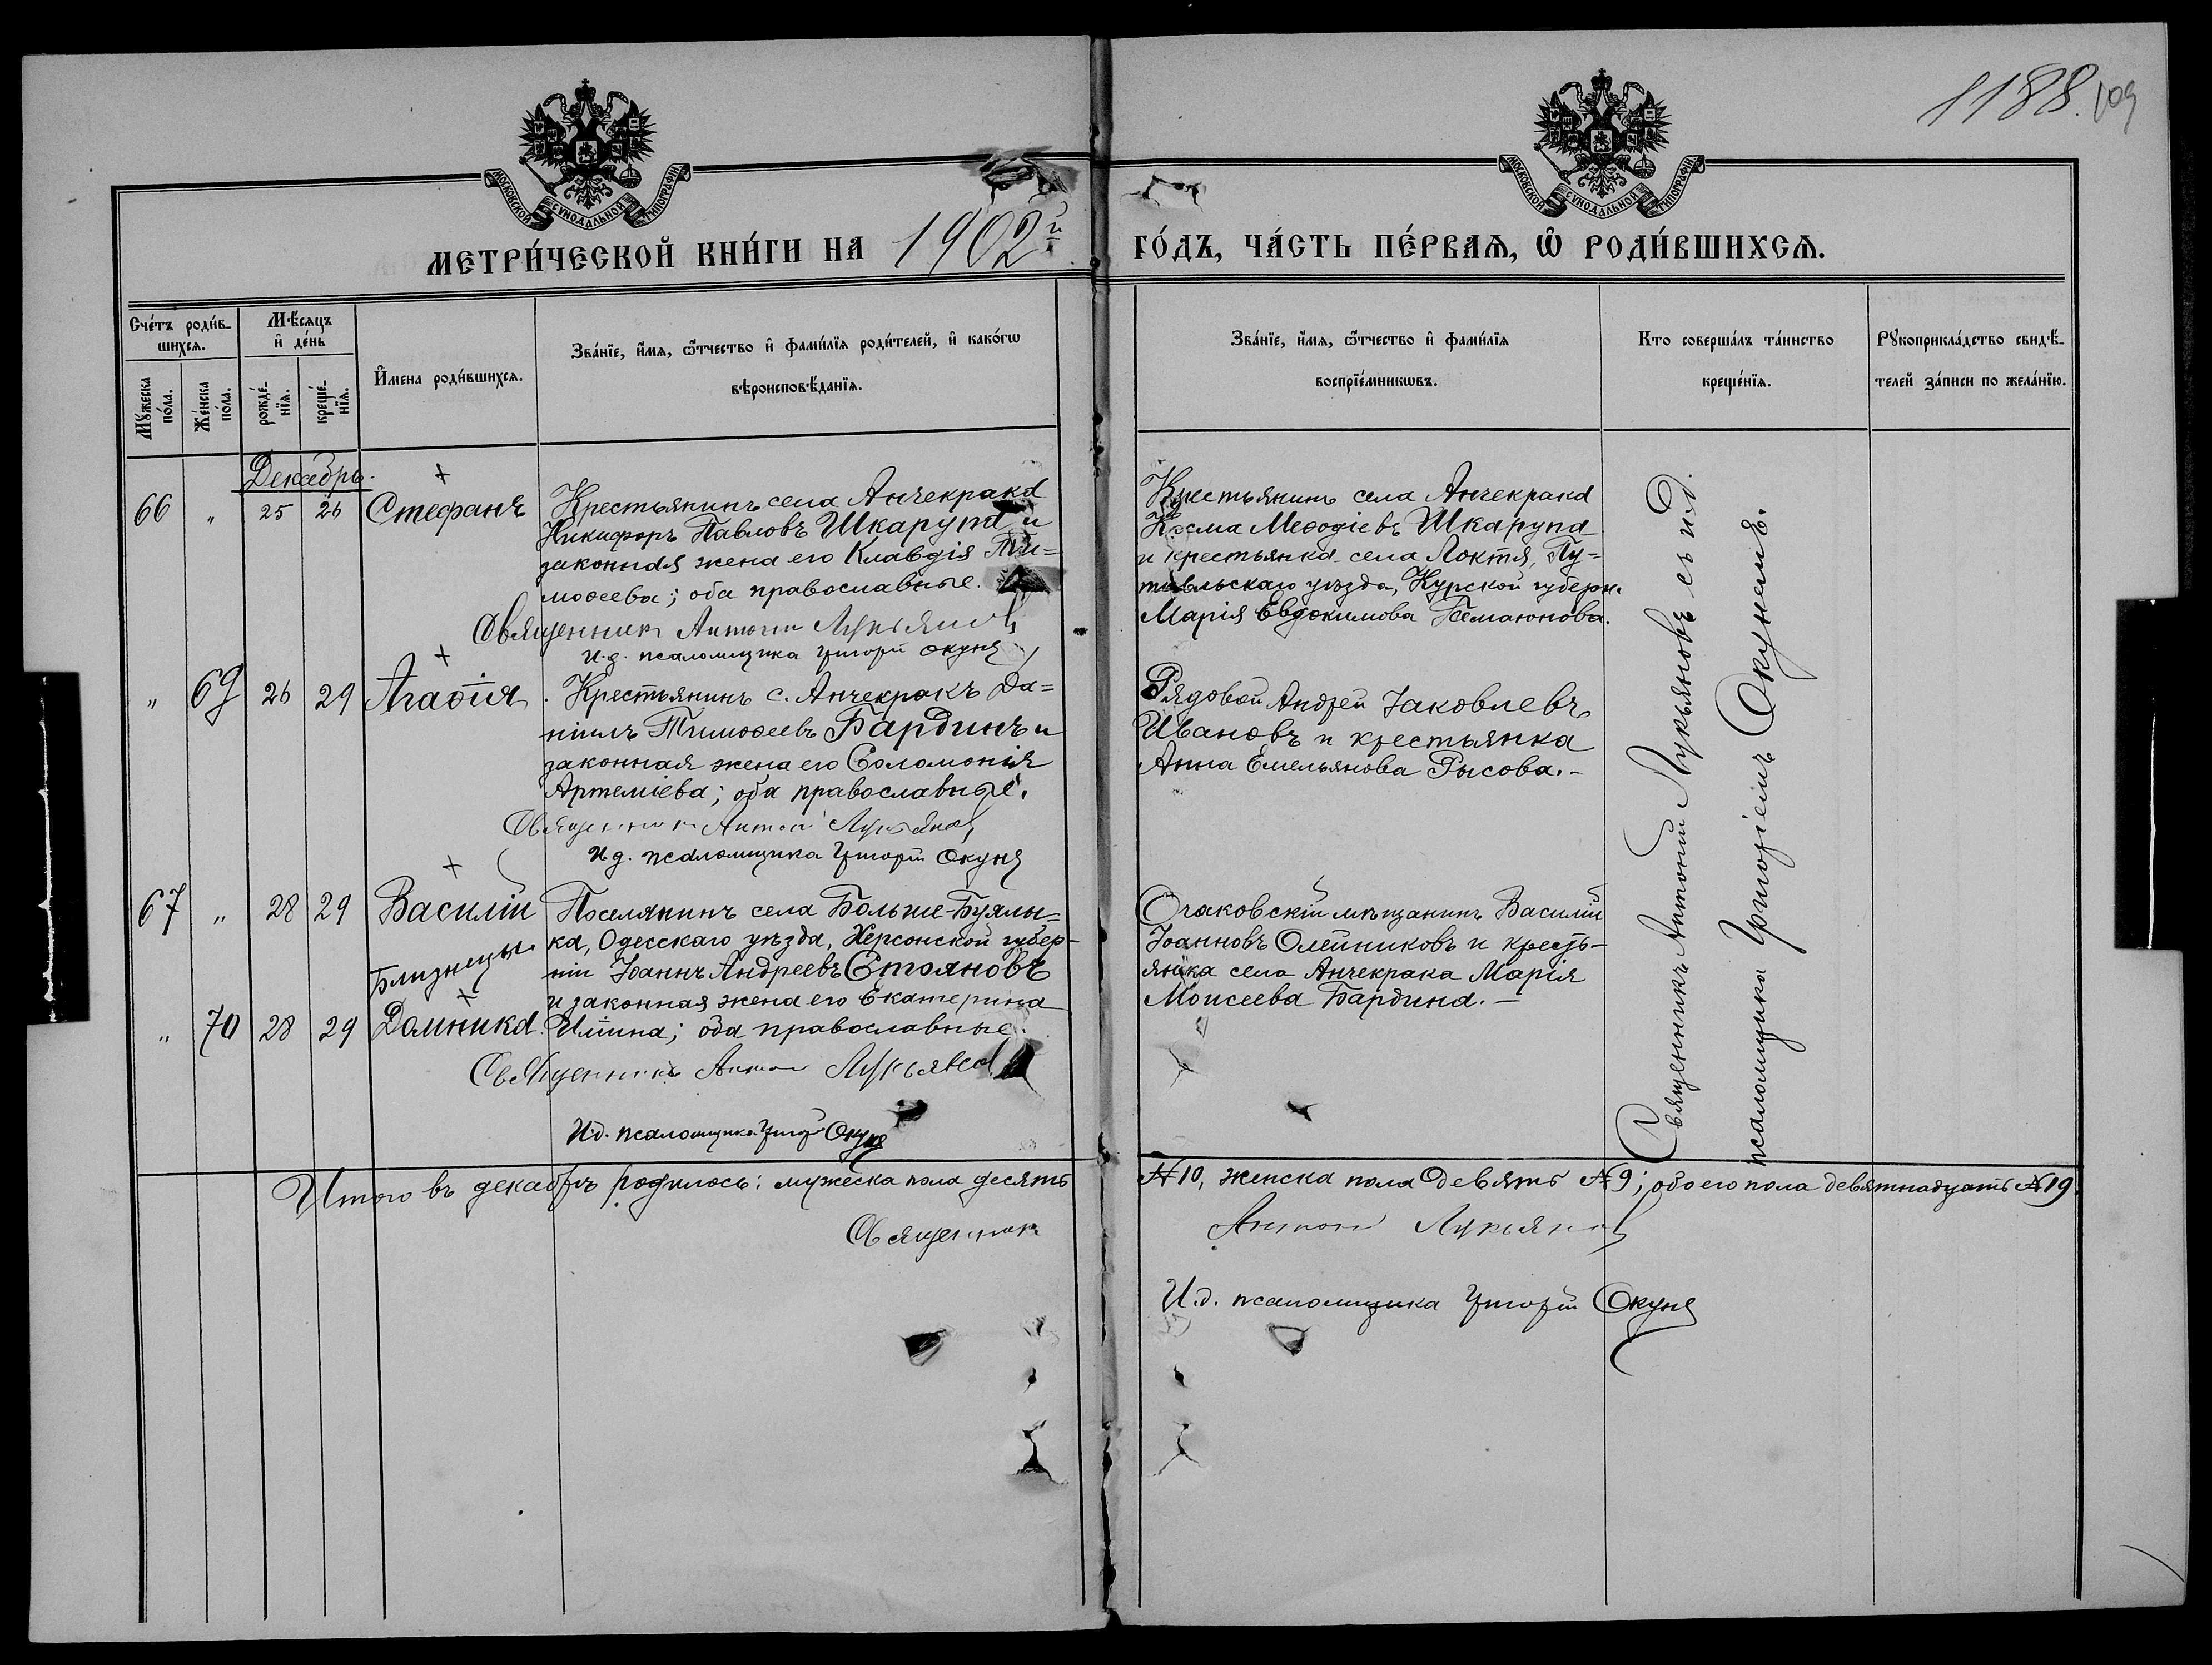 1188. 109
МОСКОВСКОЙ СѴНОДАЛЬНОЙ ТИПОГРАФІИ
МОСКОВСКОЙ СѴНОДАЛЬНОЙ ТИПОГРАФІИ
МЕТРИ́ЧЕСКОЙ КНИ́ГИ НА 1902й
ГО́ДЪ, ЧА́СТЬ ПЕ́РВАѦ, Ѽ РОДИ́ВШИХСѦ.
Счéтъ роди́в-
шихсѧ.
Мꙋ́жеска по́ла.
Же́нска по́ла.
Мѣ́сѧцъ
и҆ де́нь
рожде́-
нїѧ.
креще́-
нїѧ.
И҆мена роди́вшихсѧ.
Зва́нїе, и҆́мѧ, ѻ҆́тчество и҆ фами́лїѧ роди́телей, и҆ како́гѡ
вѣроисповѣ́данїѧ.
Зва́нїе, и҆́мѧ, ѻ҆́тчество и҆ фами́лїѧ
воспрїе́мникѡвъ.
Кто соверша́лъ та́инство
креще́нїѧ.
Рꙋкоприкла́дство свидѣ́-
телей за́писи по жела́нїю.
Декабрь.
66 " 25 26 Стефанъ
Крестьянинъ села Анчекрака
Никифоръ Павловъ Шкарупа и
законная жена его Клавдія Ти-
моѳеева; оба православные.
Священникъ Антоній Лукьяновъ
И.д. псаломщика Григорій Окунь
Крестьянинъ села Анчекрака
Косма Меѳодіевъ Шкарупа
и крестьянка села Локтя, Пу-
тивльскаго уѣзда, Курской губерн.
Марія Евдокимова
" 69 26 29 Агаѳія
Крестьянинъ с. Анчекракъ Да-
ніилъ Тимоѳеевъ Бардинъ и
законная жена его Соломонія
Артеміева; оба православные.
Священникъ Антоній Лукьяновъ
И.д. псаломщика Григорій Окунь
Рядовой Андрей Іаковлевъ
Ивановъ и крестьянка
Анна Емельянова Рысова.-
67 " 28 29 Василій
Близнецы
" 70 28 29 Домника.
Поселянинъ села Больше-Буялы-
ка, Одесскаго уѣзда, Херсонской губер-
ніи Іоаннъ Андреевъ Стояновъ
и законная жена его Екатерина
Ильина; оба православные.
Священникъ Антоній Лукьяновъ
И.д. псаломщика Григорій Окунь
Очаковскій мѣщанинъ Василій
Іоанновъ Олейниковъ и кресть-
янка села Анчекрака Марія
Моисеева Бардина.-
Священникъ Антоній Лукьяновъ съ и.д.
псаломщика Григоріемъ Окунемъ.
Итого въ декабрѣ родилось: мужеска пола десять
№ 10, женска пола девять № 9; обоего пола девятнадцать № 19.
Священникъ
Антоній Лукьяновъ
И.д. псаломщика Григорій Окунь